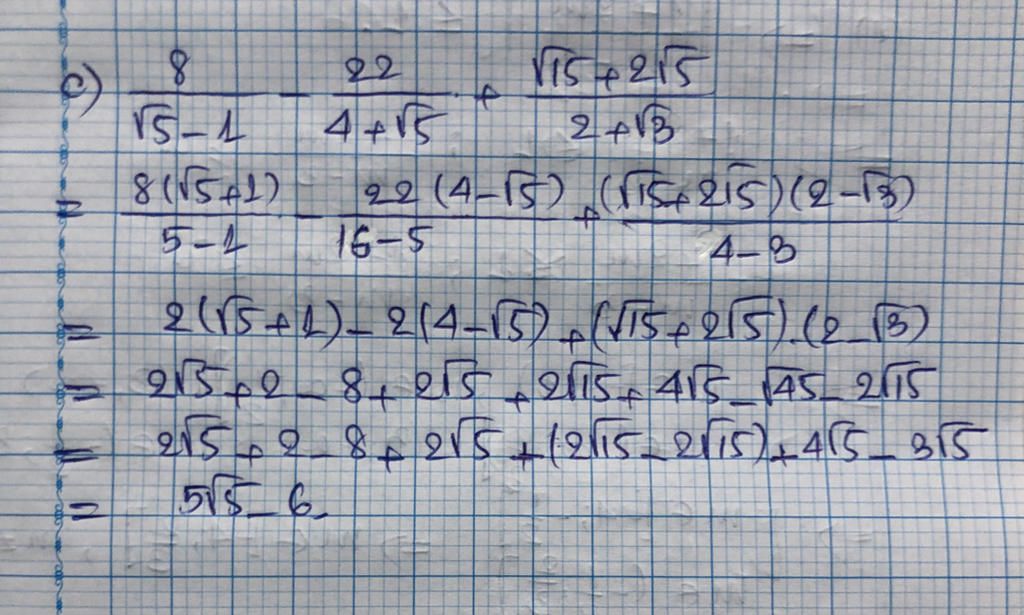 c) 8/(√5-1) - 22/(4+√5) + (√15+2√5)/(2+√3)
= 8(√5+1)/(5-1) - 22(4-√5)/(16-5) + (√15+2√5)(2-√3)/(4-3)
= 2(√5+1)-2(4-√5)+(√15+2√5).(2-√3)
= 2√5+2-8+2√5+2√15+4√5-√45-2√15
= 2√5+2-8+2√5+(2√15-2√15)+4√5-3√5
= 5√5-6.